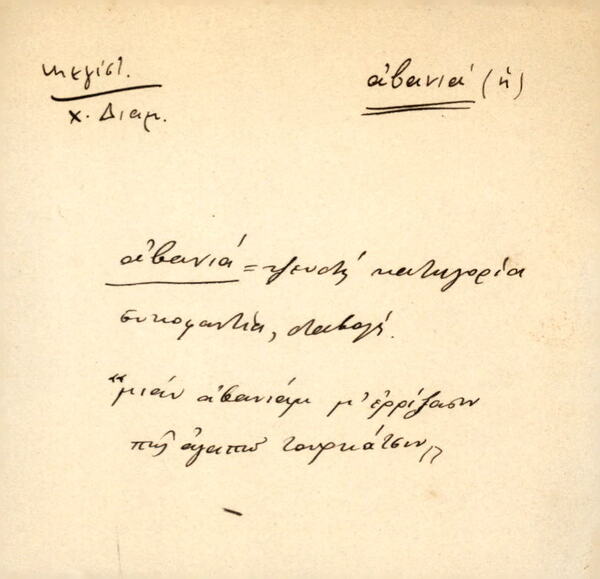 Μεγίστ.
Χ. Διαμ.
ἀβανιά (ἡ)
ἀβανιά = ψευδὴ κατηγορία
συκοφαντία, διαβολή.
"μιάν ἀβανιάμ μ' ἐρρίξασιν
πὼς ἀγαπῶ τουρκάτσιν"